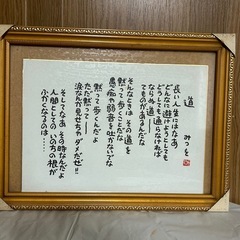 道
みつを
長い人生にはなあ
どんなに避けようとしても
どうしても通らなければ
ならぬ道
てものがあるんだな
そんなときはその道を
黙って歩くことだな
愚痴や弱音を吐かないでな
黙って歩くんだよ
ただ黙って―
涙なんか見せちゃダメだぜ!!
そしてなあその時なんだよ
人間としてのいのちの根が
ふかくなるのは……